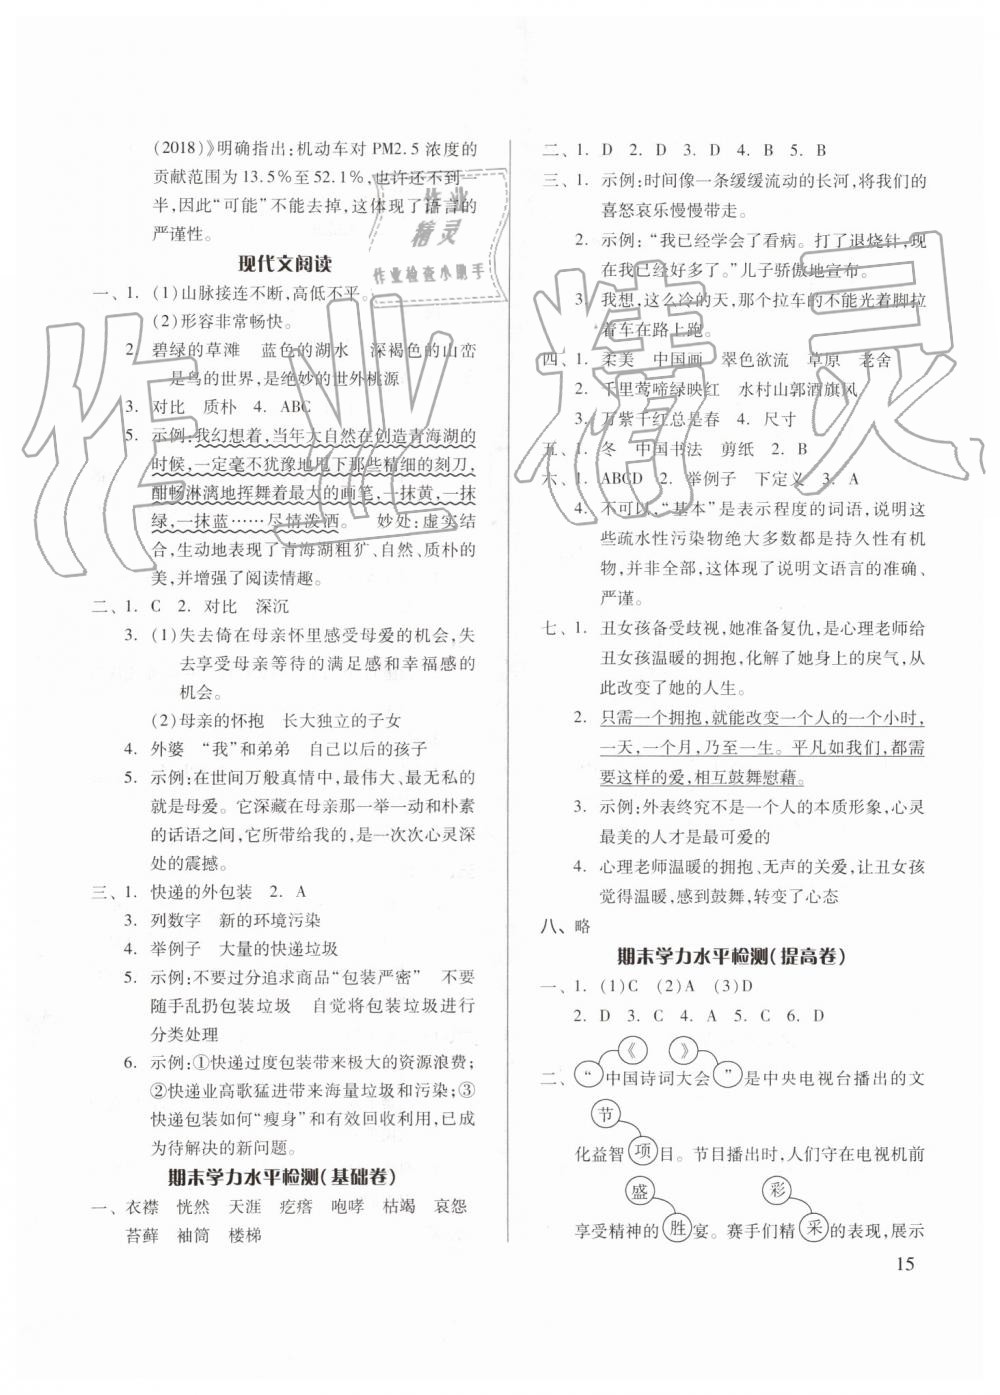 (2018)》明确指出:机动车对 PM2.5 浓度的
贡献范围为 13.5%至 52.1%,也许还不到一
半,因此“可能”不能去掉,这体现了语言的
严谨性。
现代文阅读
一、1. (1)山脉接连不断,高低不平。
(2)形容非常畅快。
2. 碧绿的草滩 蓝色的湖水 深褐色的山峦
是鸟的世界,是绝妙的世外桃源
3. 对比 质朴 4. ABC
5. 示例:我幻想着,当年大自然在创造青海湖的
时候,一定毫不犹豫地甩下那些精细的刻刀,
酣畅淋漓地挥舞着最大的画笔,一抹黄,一抹
绿,一抹蓝……尽情泼洒。 妙处:虚实结
合,生动地表现了青海湖粗犷、自然、质朴的
美,并增强了阅读情趣。
二、1. C 2. 对比 深沉
3. (1)失去倚在母亲怀里感受母爱的机会,失
去享受母亲等待的满足感和幸福感的
机会。
(2)母亲的怀抱 长大独立的子女
4. 外婆 “我”和弟弟 自己以后的孩子
5. 示例:在世间万般真情中,最伟大、最无私的
就是母爱。它深藏在母亲那一举一动和朴素
的话语之间,它所带给我的,是一次次心灵深
处的震撼。
三、1. 快递的外包装 2. A
3. 列数字 新的环境污染
4. 举例子 大量的快递垃圾
5. 示例:不要过分追求商品“包装严密” 不要
随手乱扔包装垃圾 自觉将包装垃圾进行
分类处理
6. 示例:①快递过度包装带来极大的资源浪费;
②快递业高歌猛进带来海量垃圾和污染;③
快递包装如何“瘦身”和有效回收利用,已成
为待解决的新问题。
期末学力水平检测(基础卷)
一、衣襟 恍然 天涯 疙瘩 咆哮 枯竭 哀怨
苔藓 袖筒 楼梯
二、1. D 2. D 3. D 4. B 5. B
三、1. 示例:时间像一条缓缓流动的长河,将我们的
喜怒哀乐慢慢带走。
2. 示例:“我已经学会了看病。打了退烧针,现
在我已经好了。”儿子骄傲地宣布。
3. 我想,这么冷的天,那个拉车的不能光着脚拉
着车在路上跑。
四、1. 柔美 中国画 翠色欲流 草原 老舍
2. 千里莺啼绿映红 水村山郭酒旗风
3. 万紫千红总是春 4. 尺寸
五、1. 冬 中国书法 剪纸 2. B
六、1. ABCD 2. 举例子 下定义 3. A
4. 不可以,“基本”是表示程度的词语,说明这
些疏水性污染物绝大多数都是持久性有机
物,并非全部,体现了说明文语言的准确、
严谨。
七、1. 丑女孩备受歧视,她准备复仇,是心理老师给
丑女孩温暖的拥抱,化解了她身上的戾气,从
此改变了她的人生。
2. 只需一个拥抱,就能改变一个人的一个小时,
一天,一个月,乃至一生。平凡如我们,都需
要这样的爱,相互鼓舞慰藉。
3. 示例:外表终究不是一个人的本质形象,心灵
最美的人才是最可爱的
4. 心理老师温暖的拥抱、无声的关爱,让丑女孩
觉得温暖,感到鼓舞,转变了心态
八、略
期末学力水平检测(提高卷)
一、1. (1)C (2)A (3)D
2. D 3. C 4. A 5. C 6. D
《 》
二、“中国诗词大会”是中央电视台播出的文
节
化益智项目。节目播出时,人们守在电视机前
盛 彩
享受精神的胜宴。赛手们精采的表现,展示
15
作业
精灵
作业检查小助手
作业精灵